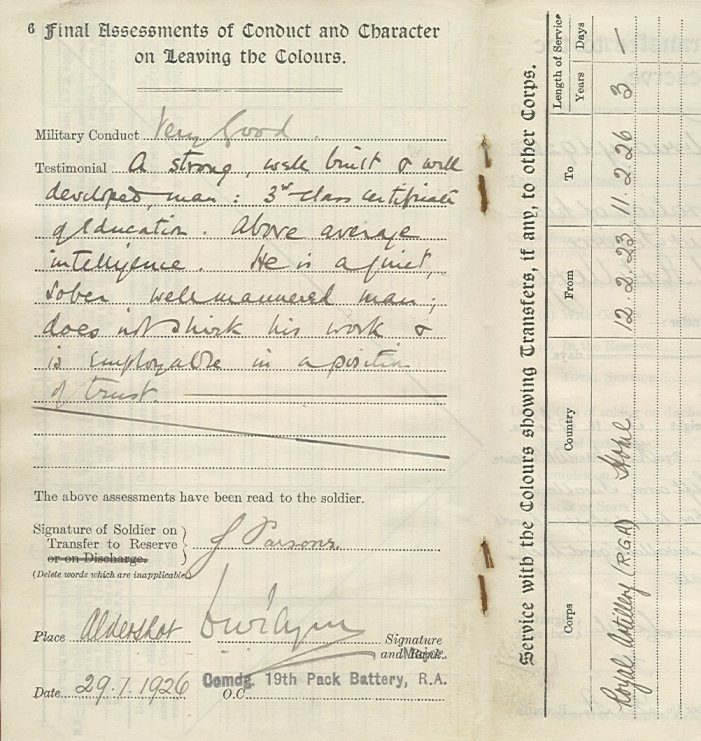 6 Final Assessments of Conduct and Character
on Leaving the Colours.
Military Conduct Very Good.
Testimonial A strong, well built & well
developed, man: 3rd class certificate
of Education. Above average
intelligence. He is a quiet,
sober well mannered man;
does not shirk his work &
is employable in a position
of trust.
The above assessments have been read to the soldier.
Signature of Soldier on
Transfer to Reserve
or on Discharge.
J Parsons.
(Delete words which are inapplicable)
Place Aldershot
Signature
and Rank.
Major.
Date 29.1.1926
O.C.
Comdg. 19th Pack Battery, R.A.
Service with the Colours showing Transfers, if any, to other Corps.
Corps Country From To Length of Service
Years Days
Royal Artillery (R.G.A) Home 12.2.23 11.2.26 3 /